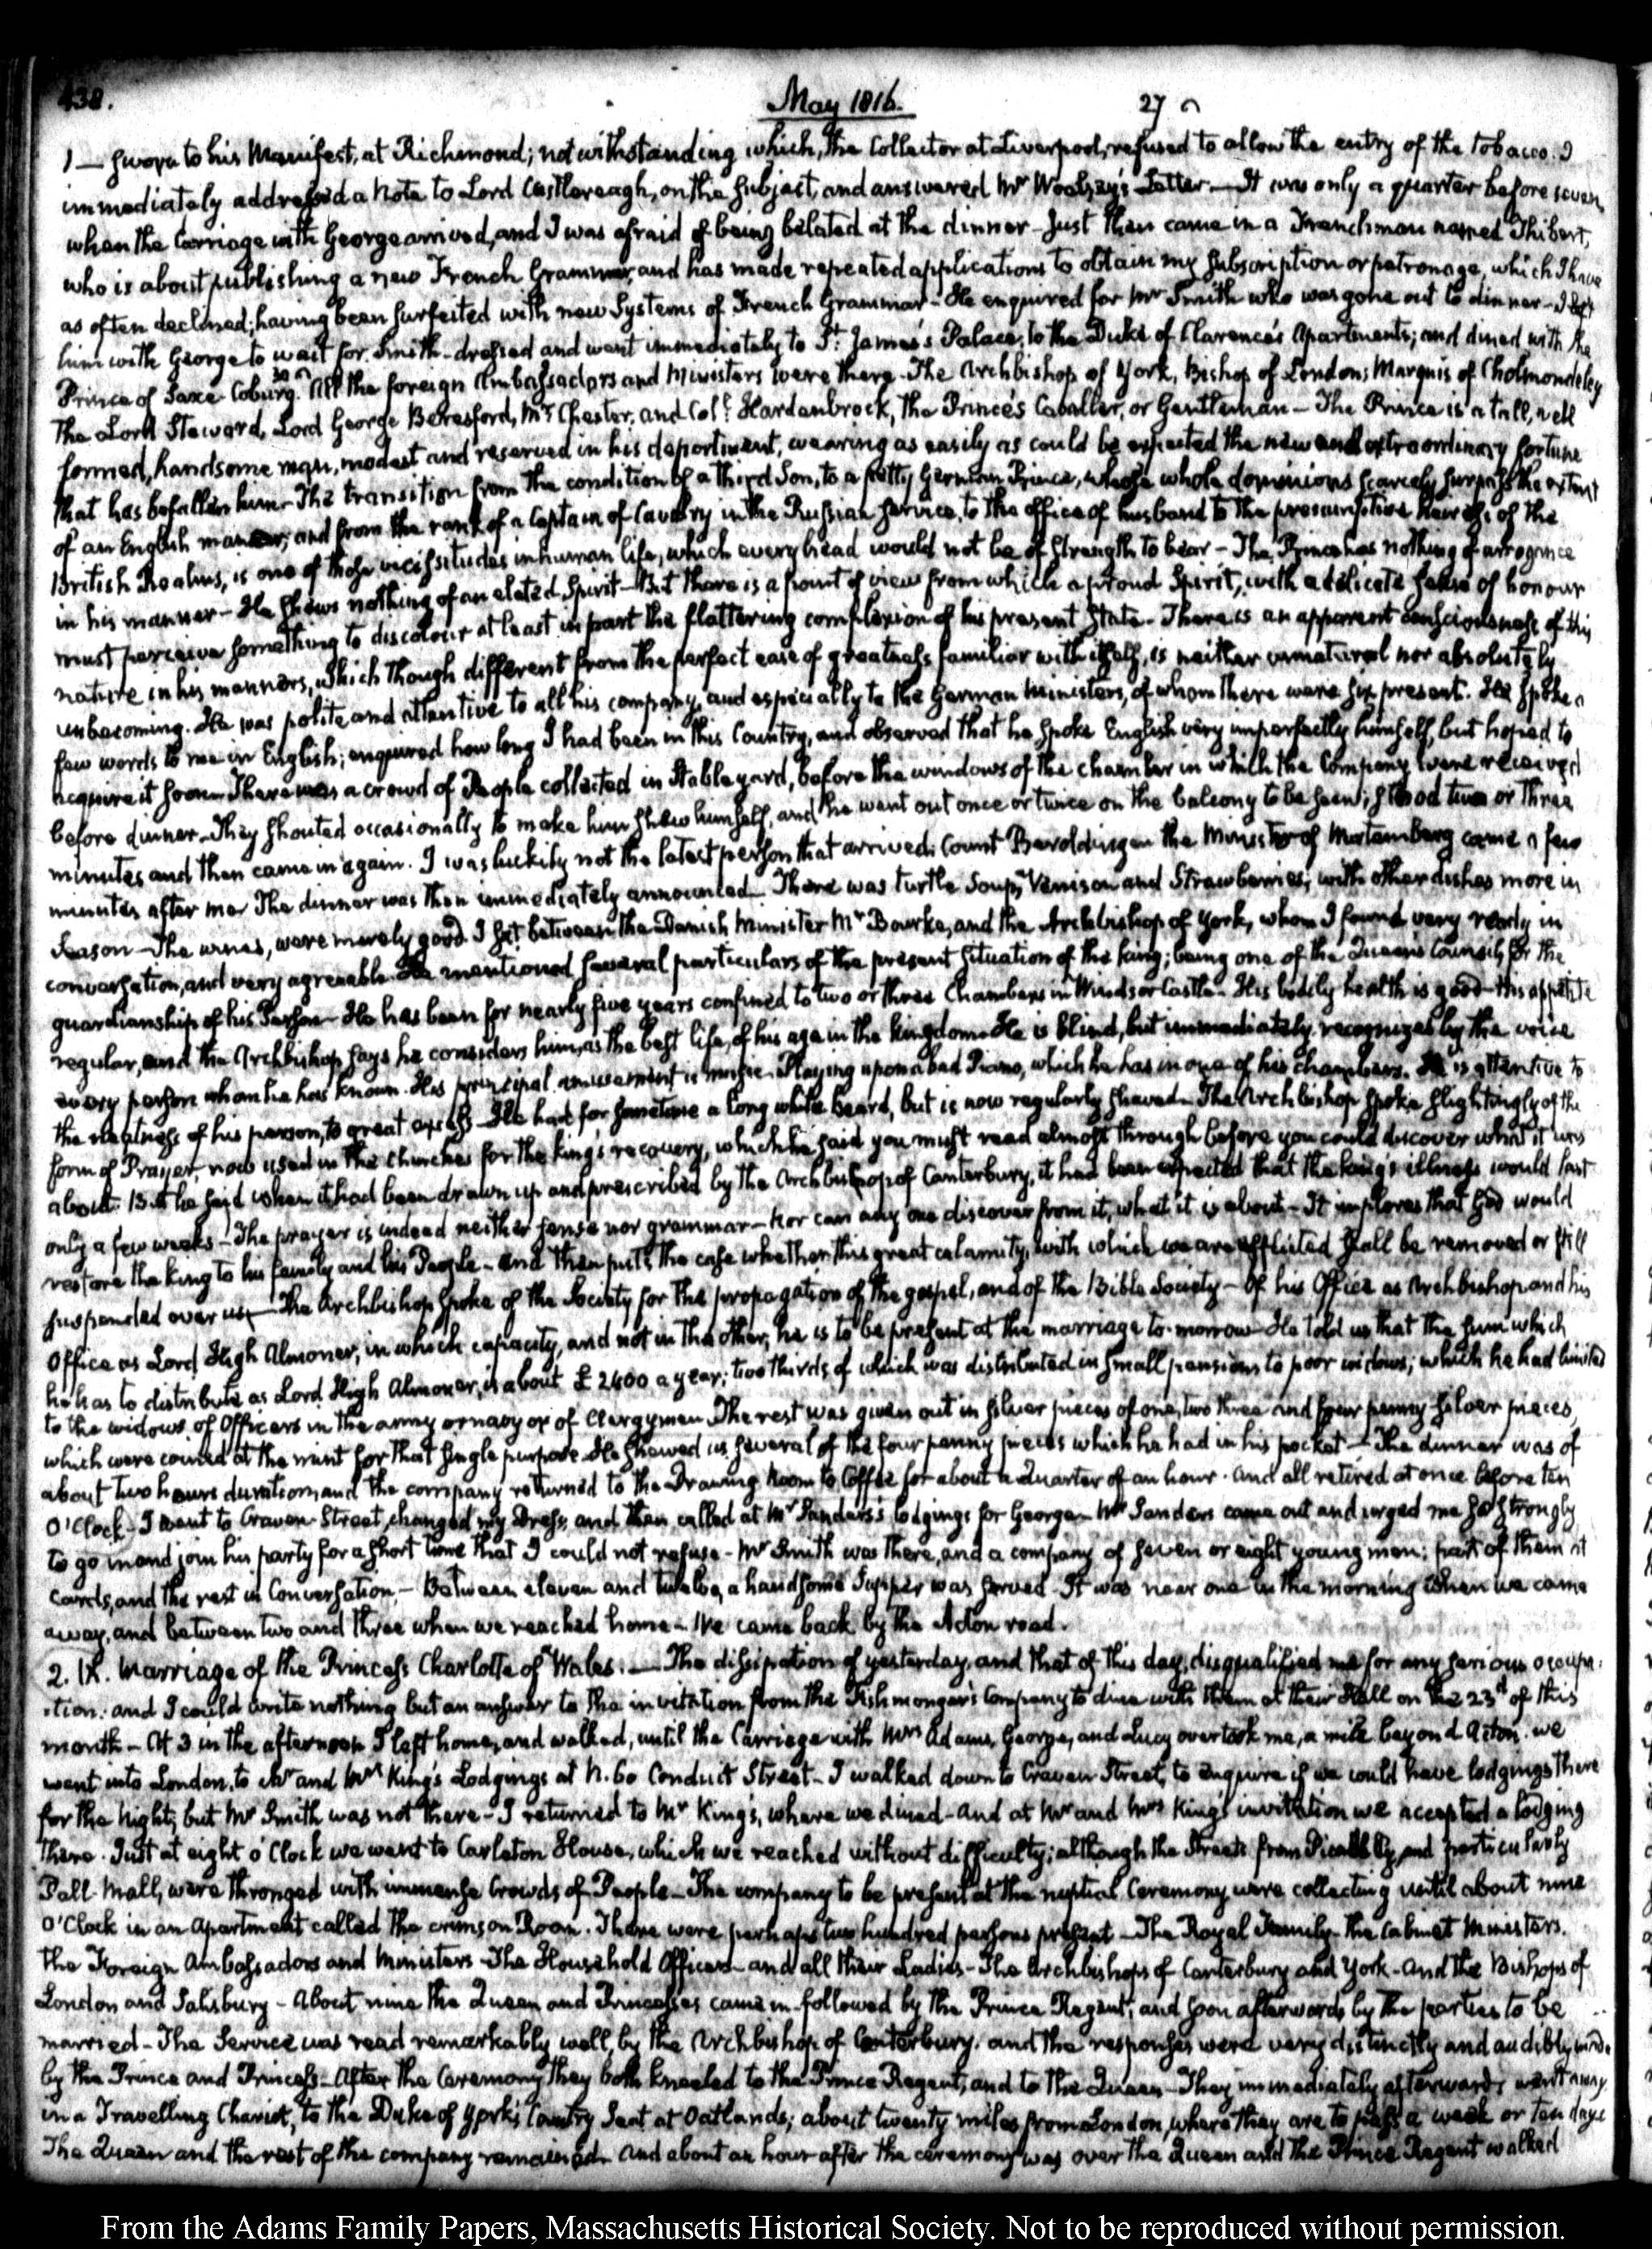 438. May 1816. 27
1 — sworn to his Manifest, at Richmond; notwithstanding which, the Collector at Liverpool, refused to allow the entry of the tobacco. I
immediately addressed a Note to Lord Castlereagh, on the subject, and answered Mr Woolsey's Letter — It was only a quarter before seven,
when the Carriage with George arrived, and I was afraid of being belated at the dinner — Just then came in a Frenchman named Thibert,
who is about publishing a new French Grammar, and has made repeated applications to obtain my subscription or patronage, which I have
as often declined; having been surfeited with new Systems of French Grammar — He enquired for Mr Smith who was gone out to dinner — I left
him with George to wait for Smith — dressed and went immediately to St. James's Palace, to the Duke of Clarence's Apartments; and dined with the
Prince of Saxe-Coburg. All the foreign Ambassadors and Ministers were there — The Archbishop of York, Bishop of London; Marquis of Cholmondeley
The Lord Steward, Lord George Beresford, Mr Chester, and Coll. Hardenbrock, the Prince's Caballer, or Gentleman — The Prince is a tall, well
formed, handsome man, modest and reserved in his deportment, wearing as easily as could be expected the new and extraordinary fortune
that has befallen him — The transition from the condition of a third Son, to a petty German Prince, whose whole dominions scarcely surpass the extent
of an English manor; and from the rank of a Captain of Cavalry in the Russian service, to the office of husband to the presumptive Heiress of the
British Realms, is one of those vicissitudes in human life, which every head would not be of strength to bear — The Prince has nothing of arrogance
in his manner — He shews nothing of an elated Spirit — But there is a point of view from which a proud Spirit, with a delicate sense of honour
must perceive something to discolour at least in part the flattering complexion of his present State — There is an apparent consciousness of this
nature in his manners, which though different from the perfect ease of greatness familiar with itself, is neither unnatural nor absolutely
unbecoming. He was polite and attentive to all his company, and especially to the German Ministers, of whom there were six present. He spoke a
few words to me in English; enquired how long I had been in this Country, and observed that he spoke English very imperfectly himself, but hoped to
acquire it soon — There was a crowd of People collected in Stableyard, before the windows of the chamber in which the Company were received
before dinner — They shouted occasionally to make him shew himself, and he went out once or twice on the balcony to be seen; stood two or three
minutes and then came in again. I was luckily not the latest person that arrived. Count Beroldingen the Minister of Wurtemberg came a few
minutes after me. The dinner was then immediately announced — There was turtle Soup, Venison and Strawberries; with other dishes more in
Season — The wines, were merely good. I sat between the Danish Minister Mr Bourke, and the Archbishop of York, whom I found very ready in
conversation, and very agreeable — He mentioned several particulars of the present situation of the King; being one of the Queen's Council, for the
guardianship of his Person — He has been for nearly five years confined to two or three Chambers in Windsor Castle — His bodily health is good — His appetite
regular, and the Archbishop says he considers him, as the best life, of his age in the kingdom. He is blind, but immediately recognizes by the voice
every person whom he has known. His principal amusement is music. Playing upon a bad Piano, which he has in one of his chambers. He is attentive to
the neatness of his person, to great excess — He had for sometime a long white beard, but is now regularly shaved — The Archbishop spoke slightingly of the
form of Prayer, now used in the Churches for the king's recovery, which he said you must read almost through before you could discover what it was
about. But he said when it had been drawn up and prescribed by the Archbishop of Canterbury, it had been expected that the king's illness would last
only a few weeks — The prayer is indeed neither sense nor grammar — Nor can any one discover from it, what it is about — It implores that God would
restore the King to his family and his People — and then puts the case whether this great calamity, with which we are afflicted shall be removed or still
suspended over us — The Archbishop spoke of the Society for the propagation of the gospel, and of the Bible Society — Of his Office as Archbishop and his
Office as Lord High Almoner, in which capacity, and not in the other, he is to be present at the marriage to-morrow — He told us that the sum which
he has to distribute as Lord High Almoner, is about £2400 a year; two thirds of which was distributed in small pensions to poor widows; which he had limited
to the widows of Officers in the army or navy or of Clergymen. The rest was given out in silver pieces of one, two three and four penny silver pieces,
which were coined at the mint for that single purpose. He shewed us several of the four penny pieces which he had in his pocket — The dinner was of
about two hours duration, and the company returned to the Drawing Room to Coffee for about a Quarter of an hour. and all retired at once before ten
O'Clock — I went to Craven Street, changed my Dress, and then called at Mr Sanders's lodgings for George — Mr Sanders came out and urged me so strongly
to go in and join his party for a short time that I could not refuse — Mr Smith was there, and a company of seven or eight young men; part of them at
Cards, and the rest in Conversation. — Between eleven and twelve, a handsome Supper was served. It was near one in the morning when we came
away, and between two and three when we reached home — We came back by the Acton road.
2. IX. Marriage of the Princess Charlotte of Wales. — The dissipation of yesterday, and that of this day, disqualified me for any serious occupa-
-tion. and I could write nothing but an answer to the invitation from the Fishmonger's Company to dine with them at their Hall on the 23d of this
month — At 3 in the afternoon I left home, and walked, until the Carriage with Mrs Adams, George, and Lucy overtook me, a mile beyond Acton. we
went into London, to Mr and Mrs King's Lodgings at N. 60 Conduit Street — I walked down to Craven Street, to enquire if we could have lodgings there
for the Night; but Mr Smith was not there — I returned to Mr King's, where we dined — and at Mr and Mrs King's invitation we accepted a lodging
there. Just at eight o'Clock we went to Carleton House, which we reached without difficulty; although the Streets from Picadilly, and particularly
Pall-Mall, were thronged with immense Crowds of People — The company to be present at the nuptial Ceremony were collecting until about nine
O'Clock in an Apartment called the crimson Room. There were perhaps two hundred persons present — The Royal Family — the Cabinet Ministers.
the Foreign Ambassadors and Ministers — The Household Officers — and all their Ladies — The Archbishops of Canterbury and York — and the Bishops of
London and Salisbury — About nine the Queen and Princesses came in — followed by the Prince Regent, and soon afterwards by the parties to be
married — The Service was read remarkably well, by the Archbishop of Canterbury. and the responses were very distinctly and audibly made
by the Prince and Princess — After the Ceremony they both kneeled to the Prince Regent, and to the Queen — They immediately afterwards went away
in a Travelling Chariot, to the Duke of York's Country Seat at Oatlands; about twenty miles from London, where they are to pass a week or ten days
The Queen and the rest of the company remained — and about an hour after the ceremony was over the Queen and the Prince Regent walked
From the Adams Family Papers, Massachusetts Historical Society. Not to be reproduced without permission.